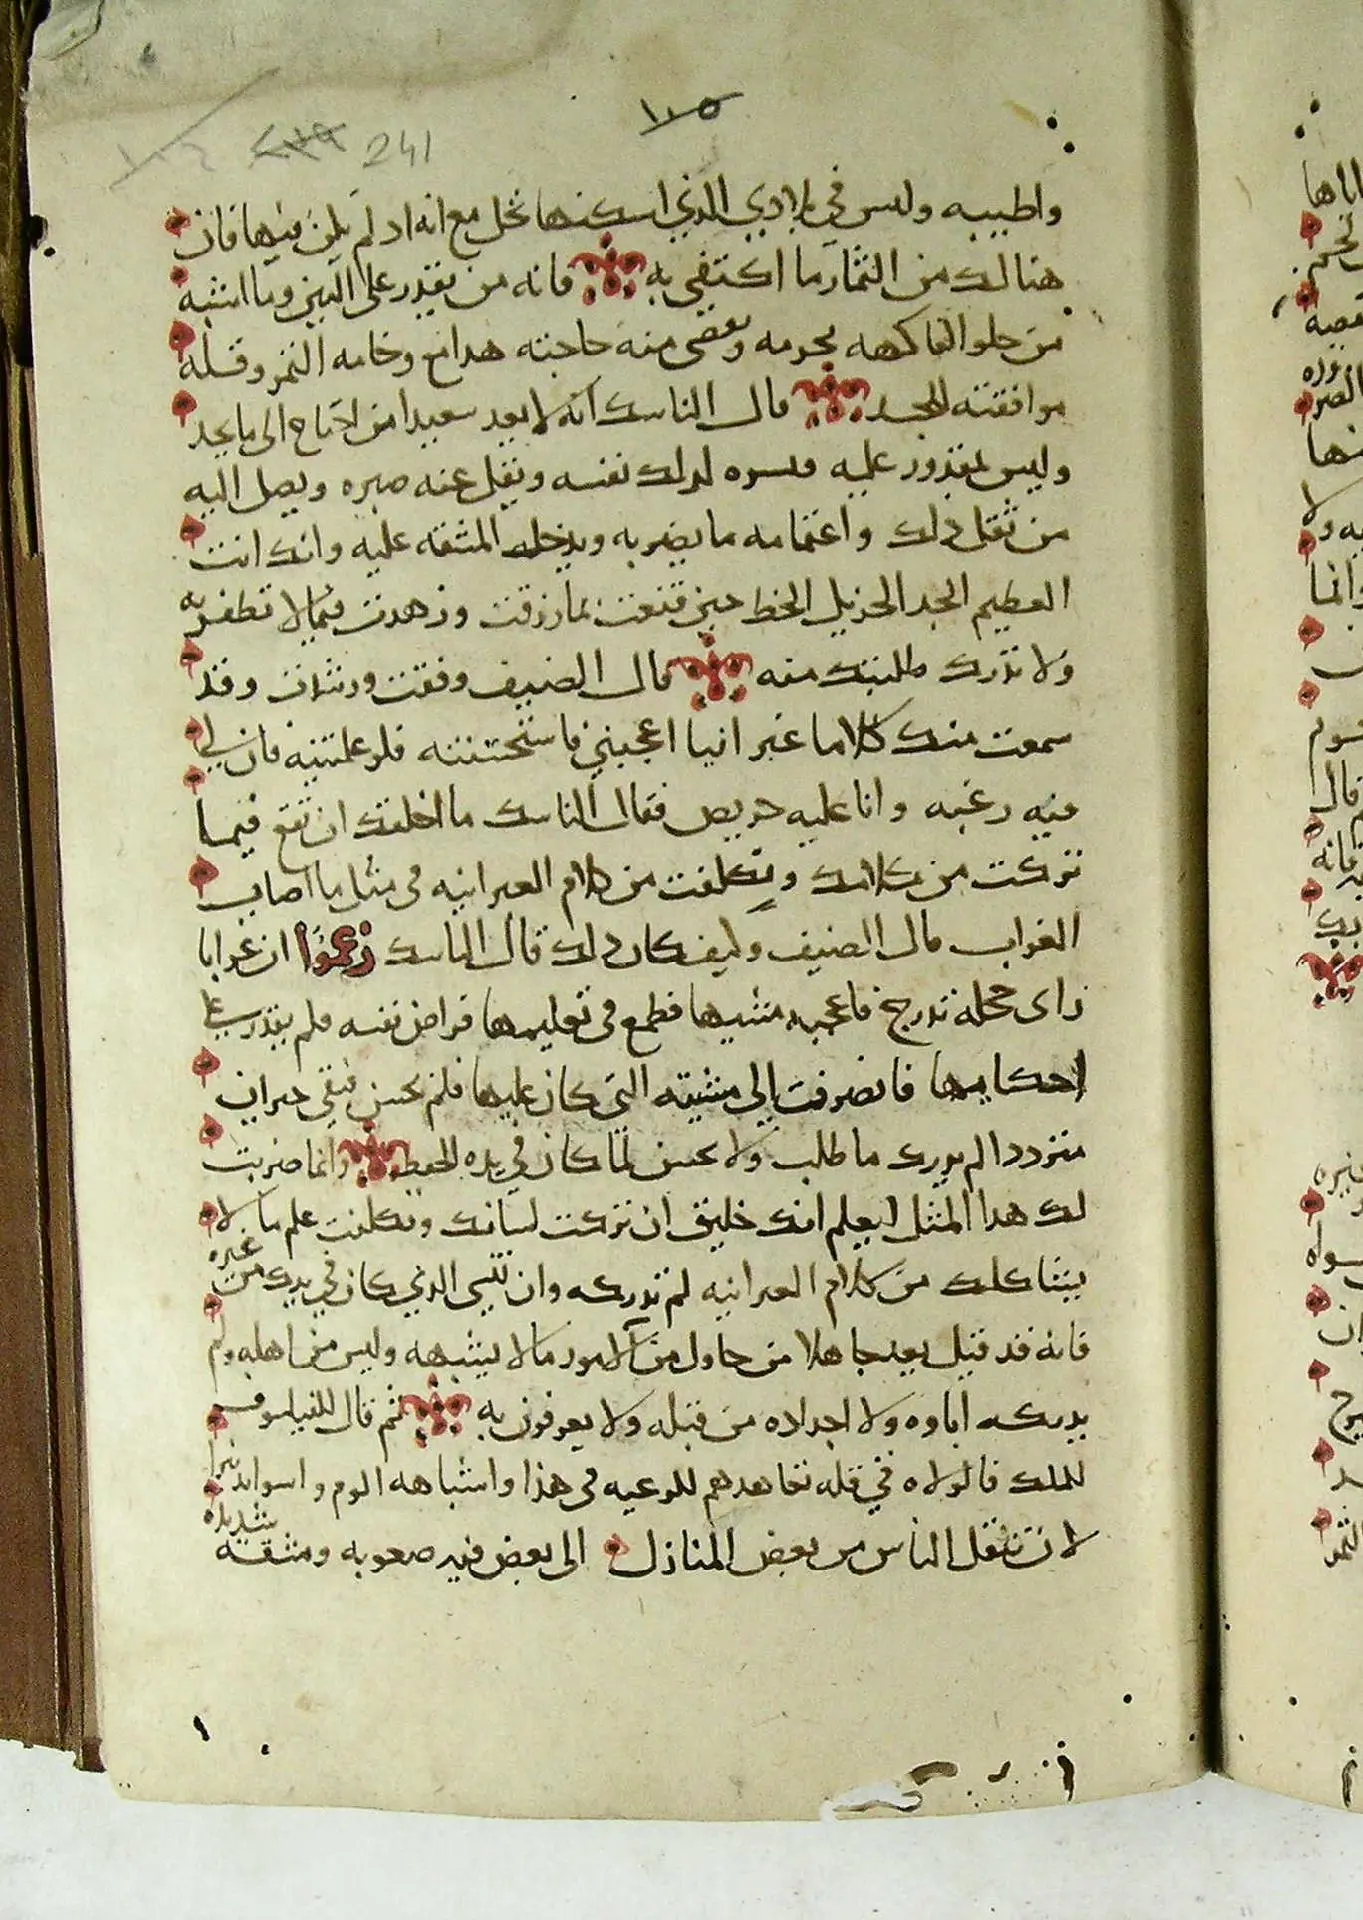 ١٠٥
241
واطيبه وليس في بلادي الذي اسكنها نخل مع انه اد لم يكن فيها فان
هنالك من الثمار ما اكتفي به فانه من يقدر على التين وما اشبه
من حلو الفاكهه بحرمه ويقضى منه حاجته هدا مع وخامه الثمر وقله
موافقته للجسد قال الناسك انه لا يعد سعيدا من احتاج الى ما يجد
وليس بمقدور عليه فتشره لدلك نفسه ويقل عنه صبره ويصل اليه
من ثقل دلك واغتمامه ما يضر به ويدخل المشقه عليه وانك انت
العظيم الجد الجزيل الحظ حين قنعت بما رزقت وزهدت فيما لا تظفر به
ولا تدرك طلبتك منه قال الضيف وفقت ورشدت وقد
سمعت منك كلاما عبرانيا اعجبني فاستحسنته فلو علمتنيه فان لي
فيه رغبه وانا عليه حريص فقال الناسك ما اخلقك ان تقع فيما
تركت من كلامك وتكلفت من كلام العبرانيه فى مثل ما اصاب
الغراب قال الضيف وكيف كان دلك قال الناسك زعموا ان غرابا
راى حجله تدرج فاعجبه مشيها فطمع فى تعليمها فراض نفسه فلم يقدر على
احكامها فانصرفت الى مشيته التى كان عليها فلم يحسن فبقي حيران
متردد الم يدرك ما طلب ولا يحسن لما كان في يده الحفظ وانما ضربت
لك هدا المثل ليعلم انك خليق ان تركت لسانك وتكلفت علم ما لا
يشاكلك من كلام العبرانيه لم تدركه وان تنسى الذي كان في يدك من غيره
فانه قد قيل يعد جاهلا من حاول من الامور ما لا يشبهه وليس من اهله ولم
يدركه اباوه ولا اجداده من قبله ولا يعرفون به ثم قال الفيلسوف
للملك فالولاه في قله تعاهدهم للرعيه فى هذا واشباهه الوم واسوا تدبيرا
لان تنقل الناس من بعض المنازل الى بعض فيه صعوبه ومشقه شديده